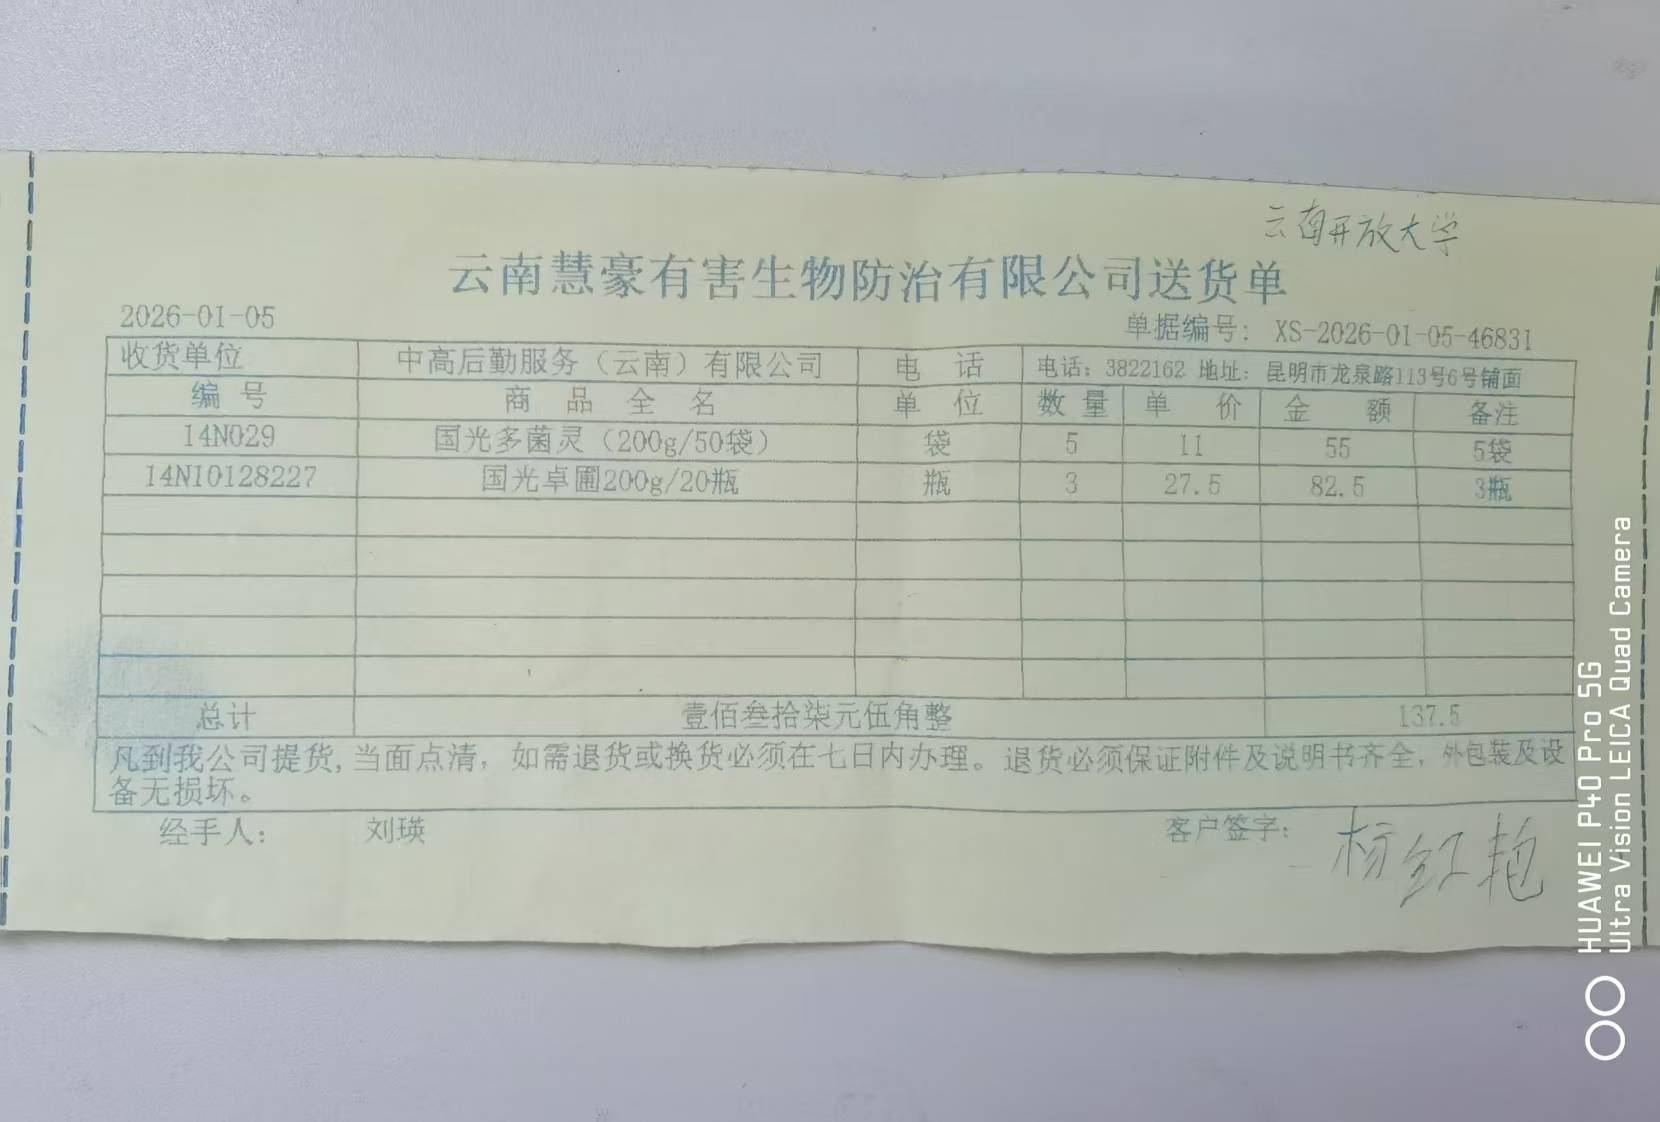 云南开放大学
云南慧豪有害生物防治有限公司送货单
2026-01-05
单据编号: XS-2026-01-05-46831
收货单位 中高后勤服务（云南）有限公司 电话 电话: 3822162 地址: 昆明市龙泉路113号6号铺面
编号 商品全名 单位 数量 单价 金额 备注
14N029 国光多菌灵（200g/50袋） 袋 5 11 55 5袋
14N10128227 国光卓圃200g/20瓶 瓶 3 27.5 82.5 3瓶
总计 壹佰叁拾柒元伍角整 137.5
凡到我公司提货, 当面点清, 如需退货或换货必须在七日内办理。退货必须保证附件及说明书齐全, 外包装及设
备无损坏。
经手人: 刘瑛 客户签字: 杨红艳
HUAWEI P40 Pro 5G
Ultra Vision LEICA Quad Camera